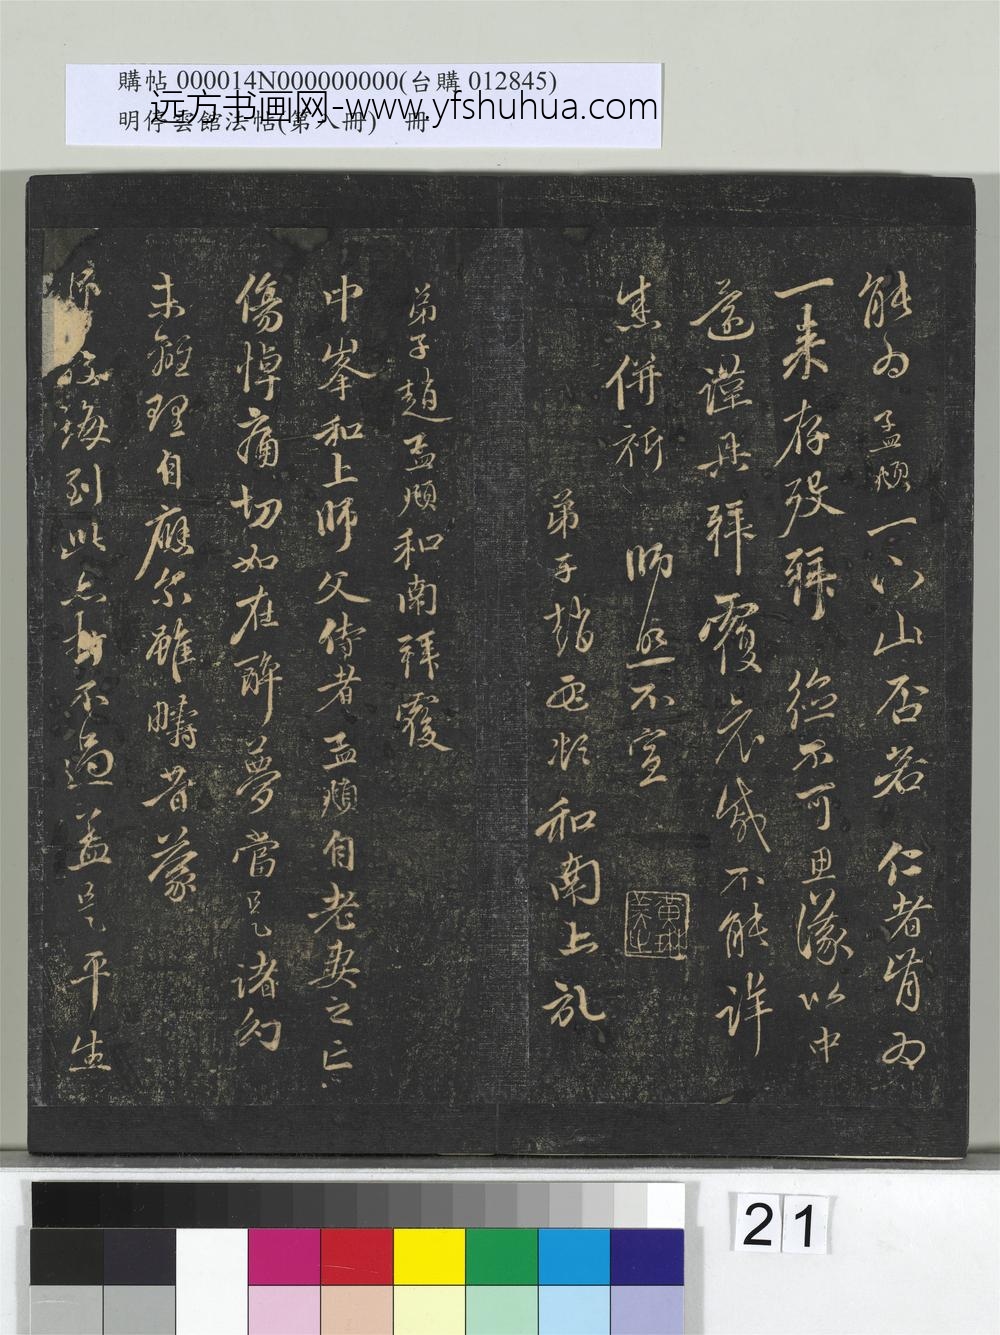 購帖 000014N000000000(台購 012845)
远方书画网-www.yfshuhua.com
明停雲館法帖(第八冊) 冊
能为孟頫一下山否若仁者肯为
一来存歿拜德不可思議以中
還謹具拜覆哀感不能詳
悉併祈 師照不宣
弟子趙孟頫和南上
黃琳美之
弟子趙孟頫和南拜覆
中峯和上師父侍者孟頫自老妻之亡
傷悼痛切如在醉夢當是諸幻
未離理自應尔雖疇昔蒙
師教誨到此亦打不過蓋是平生
21